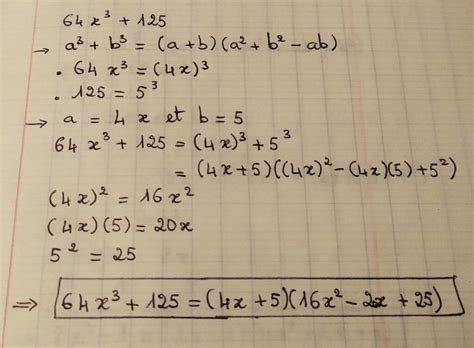 64x³ + 125
→ a³ + b³ = (a+b)(a² + b² - ab)
. 64x³ = (4x)³
. 125 = 5³
→ a = 4x et b = 5
64x³ + 125 = (4x)³ + 5³
= (4x+5)((4x)² - (4x)(5) + 5²)
(4x)² = 16x²
(4x)(5) = 20x
5² = 25
⇒ 64x³ + 125 = (4x + 5)(16x² - 2x + 25)